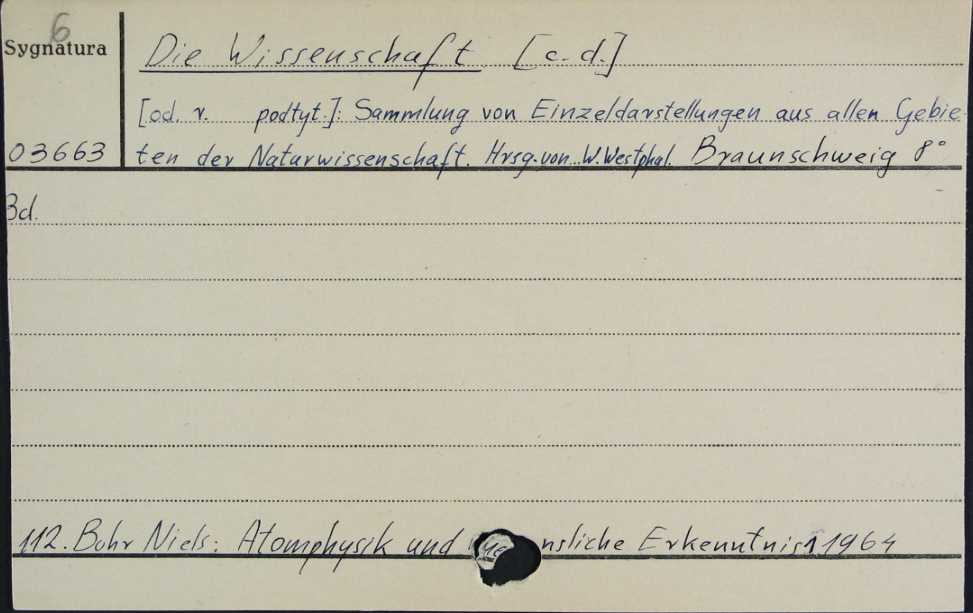 6
Sygnatura
Die Wissenschaft. [c.d.]
[od. r. podtyt.]: Sammlung von Einzeldarstellungen aus allen Gebie-
03663
ten der Naturwissenschaft. Hrsg. von W. Westphal. Braunschweig 8°
Bd.
112. Bohr Niels: Atomphysik und nsliche Erkenntnis 1 1964